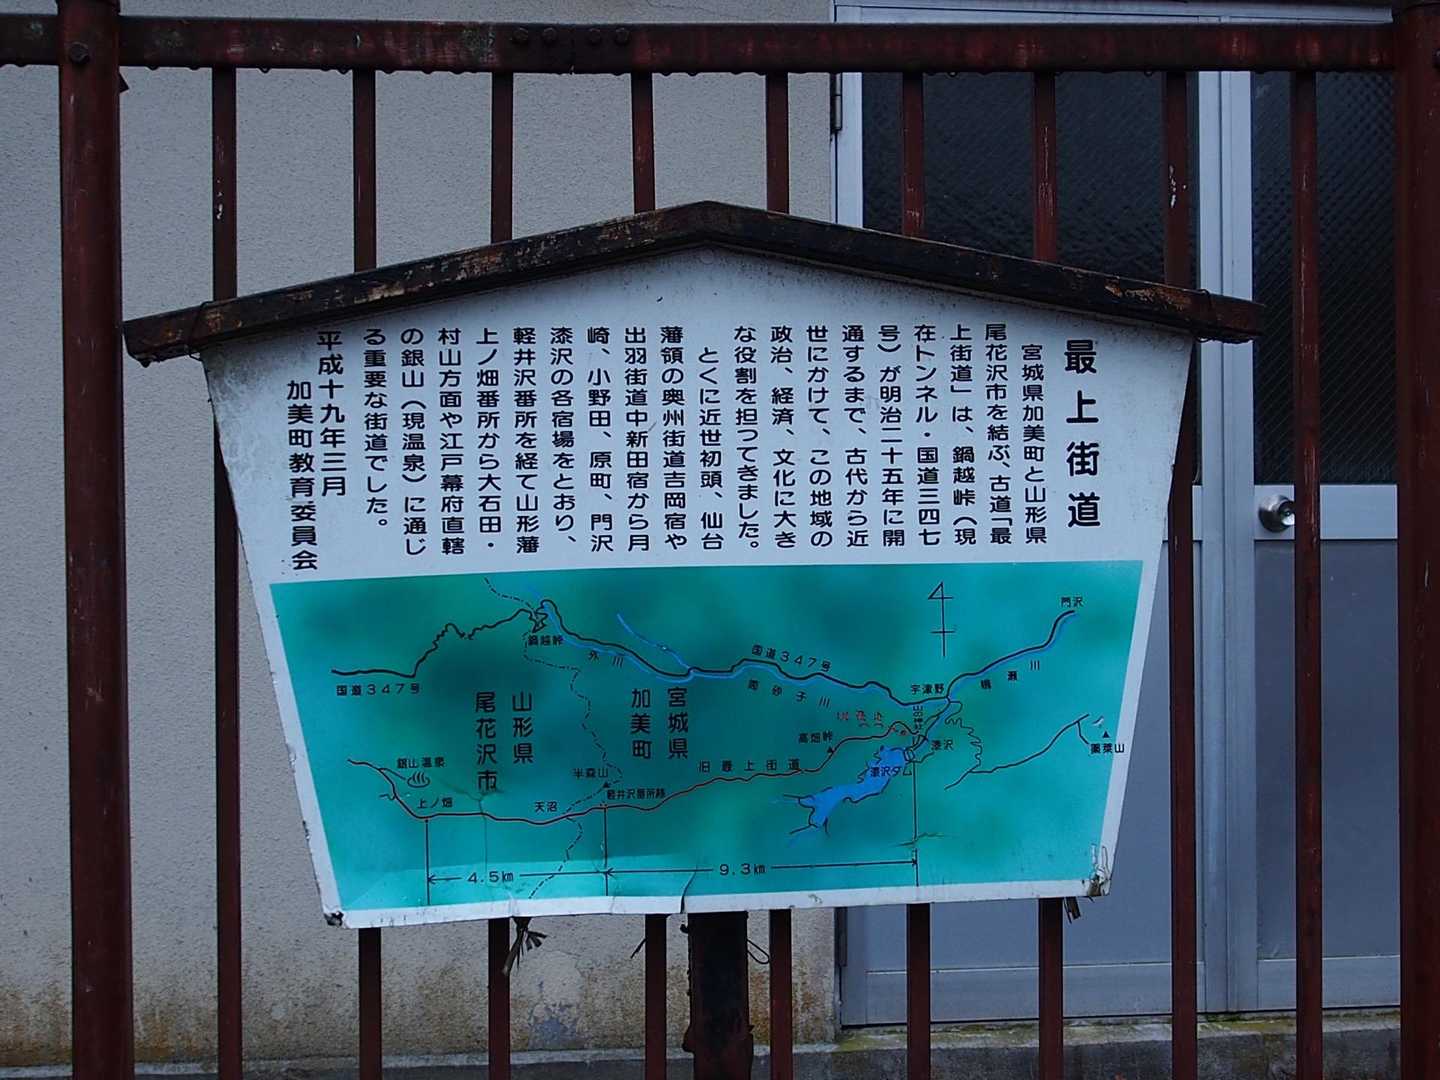 最上街道
宮城県加美町と山形県
尾花沢市を結ぶ、古道「最
上街道」は、鍋越峠（現
在トンネル・国道三四七
号）が明治二十五年に開
通するまで、古代から近
世にかけて、この地域の
政治、経済、文化に大き
な役割を担ってきました。
とくに近世初頭、仙台
藩領の奥州街道吉岡宿や
出羽街道中新田宿から月
崎、小野田、原町、門沢
漆沢の各宿場をとおり、
軽井沢番所を経て山形藩
上ノ畑番所から大石田・
村山方面や江戸幕府直轄
の銀山（現温泉）に通じ
る重要な街道でした。
平成十九年三月
加美町教育委員会
門沢
鍋越峠
外川
国道347号
国道347号
鳴瀬川
宇津野
山の神社
高畑峠
漆沢
漆沢ダム
薬莱山
宮城県
加美町
山形県
尾花沢市
銀山温泉
上ノ畑
天沼
半森山
軽井沢番所跡
旧最上街道
4.5km
9.3km